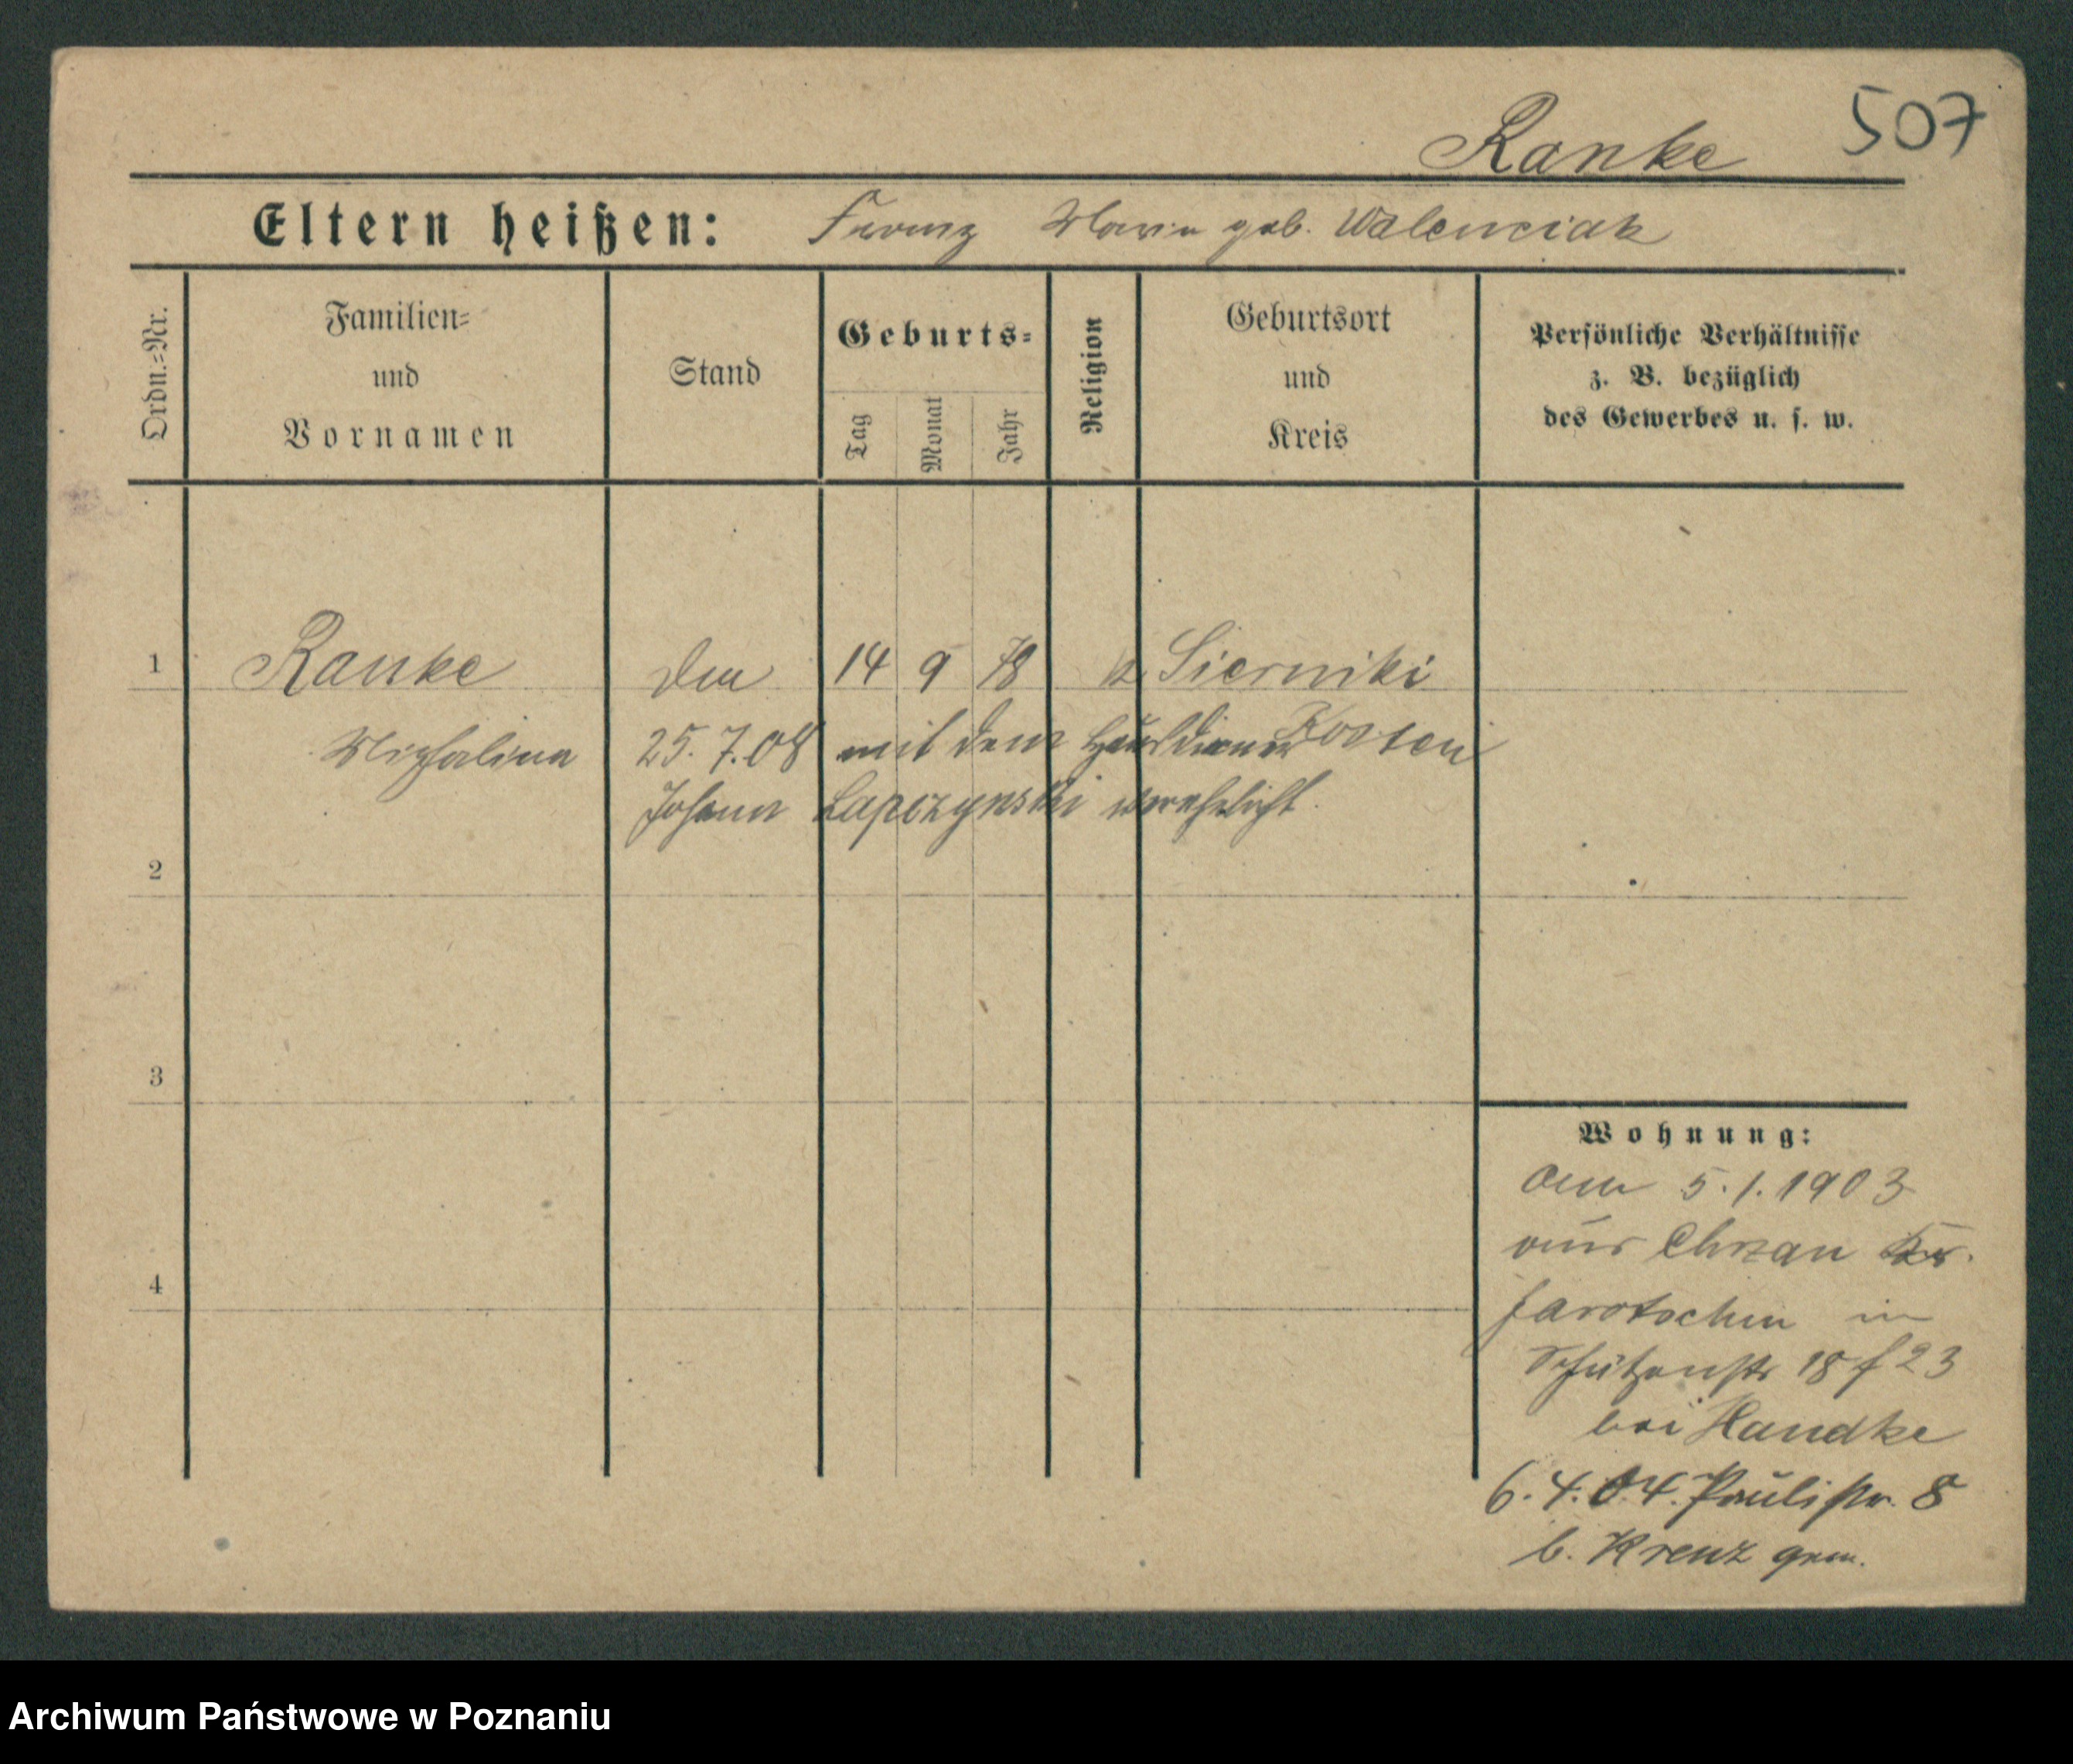 507
Ranke
Eltern heißen: Franz Maria geb. Walenciak
Ordn.=Nr.
Familien=
und
Vornamen
Stand
Geburts=
Tag
Monat
Jahr
Religion
Geburtsort
und
Kreis
Persönliche Verhältnisse
z. B. bezüglich
des Gewerbes u. s. w.
1 Ranke Den 14 9 78 k Sierniki
Michalina 25.7.08 mit dem Hausdiener Kosten
Johann Lapczynski verehelicht.
2
3
4
Wohnung:
Am 5.1.1903
aus Chrzan Kr.
Jarotschin in
Schützenstr 18 f 23
bei Handke
6.4.04. Paulistr. 8
b. Krenz gem.
Archiwum Państwowe w Poznaniu